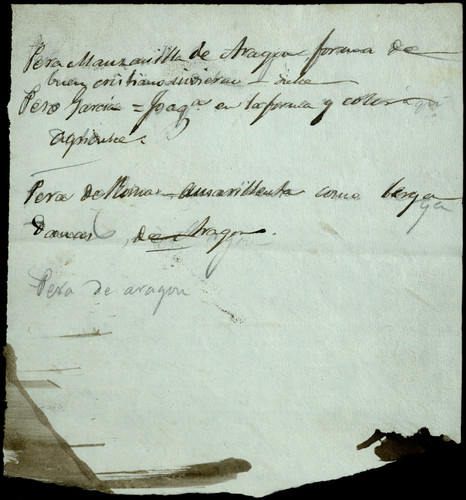 Pera Manzanilla de Aragon forma de
buen cristiano dulce
Pera Garcia = en la forma y color
agridulce.
Pera de Roma - amarillenta como berga
de Aragon.
Pera de aragon